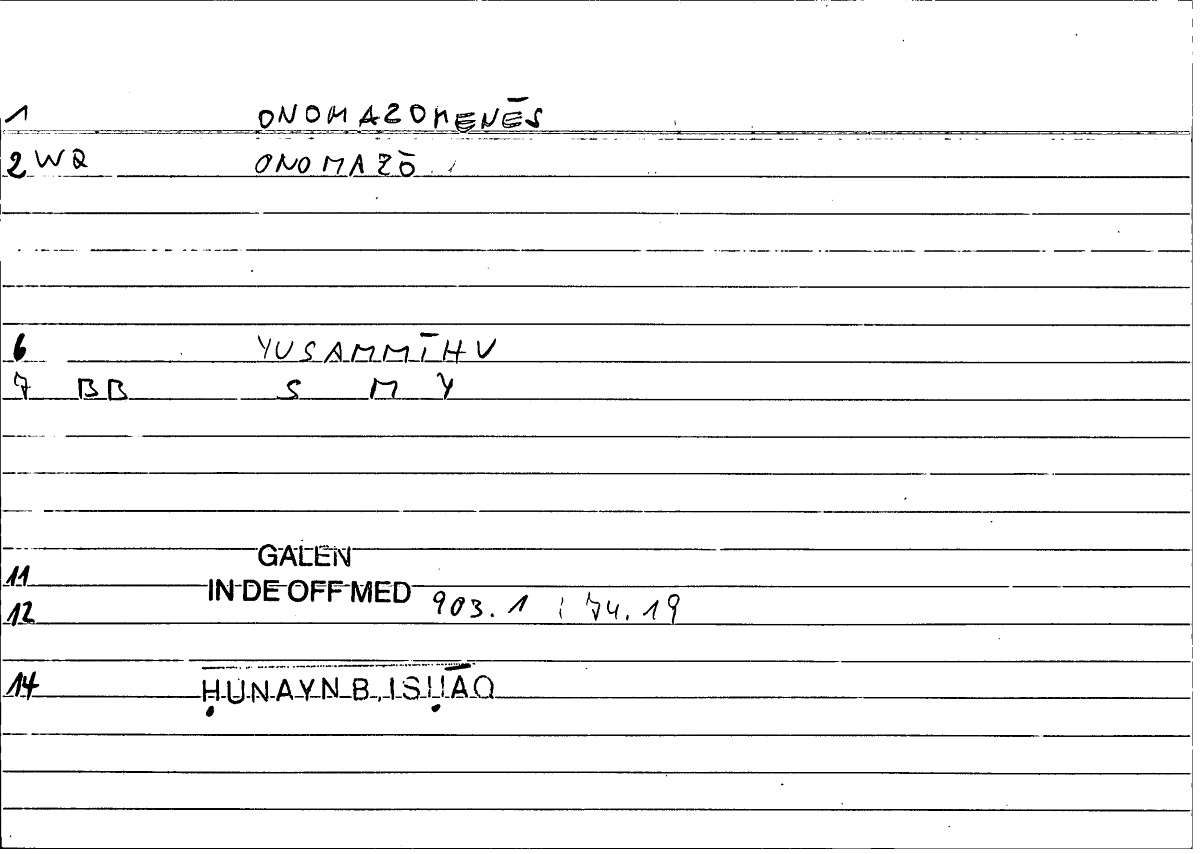 1 ONOMAZOMENĒS
2 WQ ONOMAZŌ
6 YUSAMMĪHU
7 BB S M Y
GALEN
11 IN DE OFF MED
12 903.1 ; 74.19
14 ḤUNAYN B. ISḤĀQ